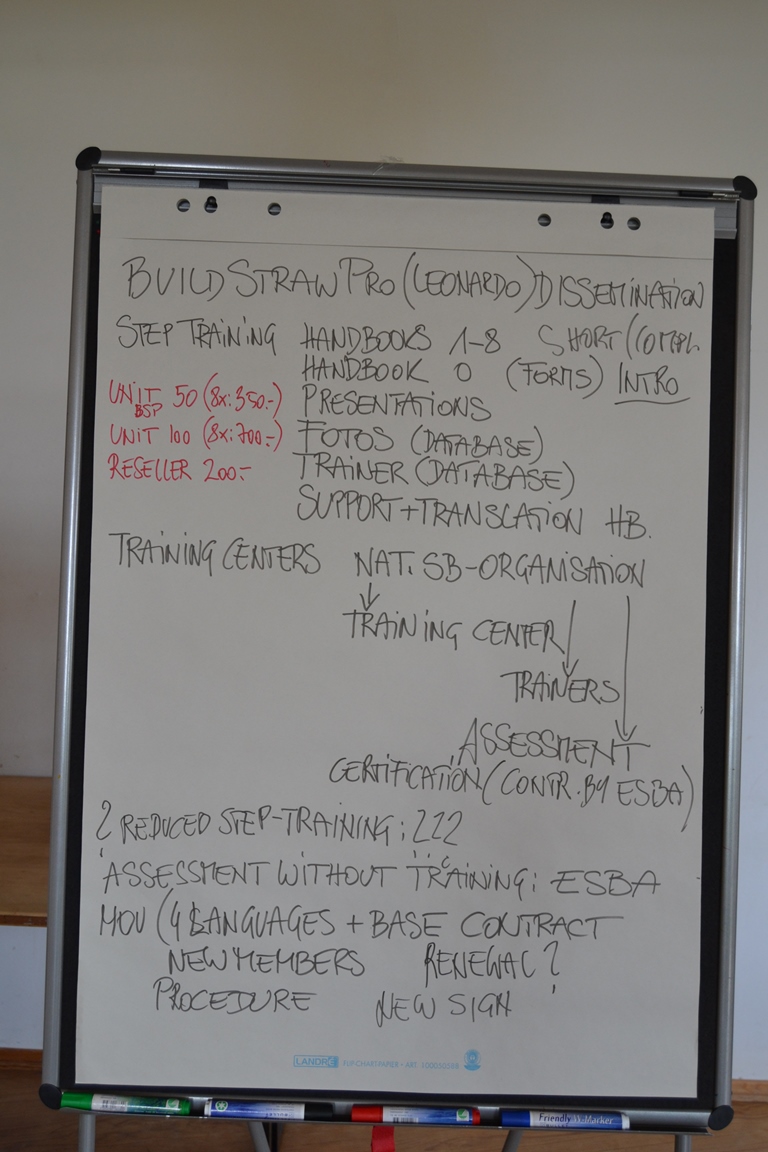 BUILDSTRAWPRO (LEONARDO) DISSEMINATION
STEP TRAINING HANDBOOKS 1-8 SHORT (COMPL.
HANDBOOK 0 (FORMS) INTRO
UNIT 50 (8x: 350.-) PRESENTATIONS
BSP
UNIT 100 (8x: 700.-) FOTOS (DATABASE)
RESELLER 200.- TRAINER (DATABASE)
SUPPORT + TRANSLATION HB.
TRAINING CENTERS NAT. SB-ORGANISATION
TRAINING CENTER
TRAINERS
ASSESSMENT
CERTIFICATION (CONTR. BY ESBA)
? REDUCED STEP-TRAINING: ???
ASSESSMENT WITHOUT TRAINING: ESBA
MOU (4 LANGUAGES + BASE CONTRACT
NEW MEMBERS RENEWAL ?
PROCEDURE NEW SIGN
LANDRÉ FLIP-CHART-PAPIER • ART.
Friendly